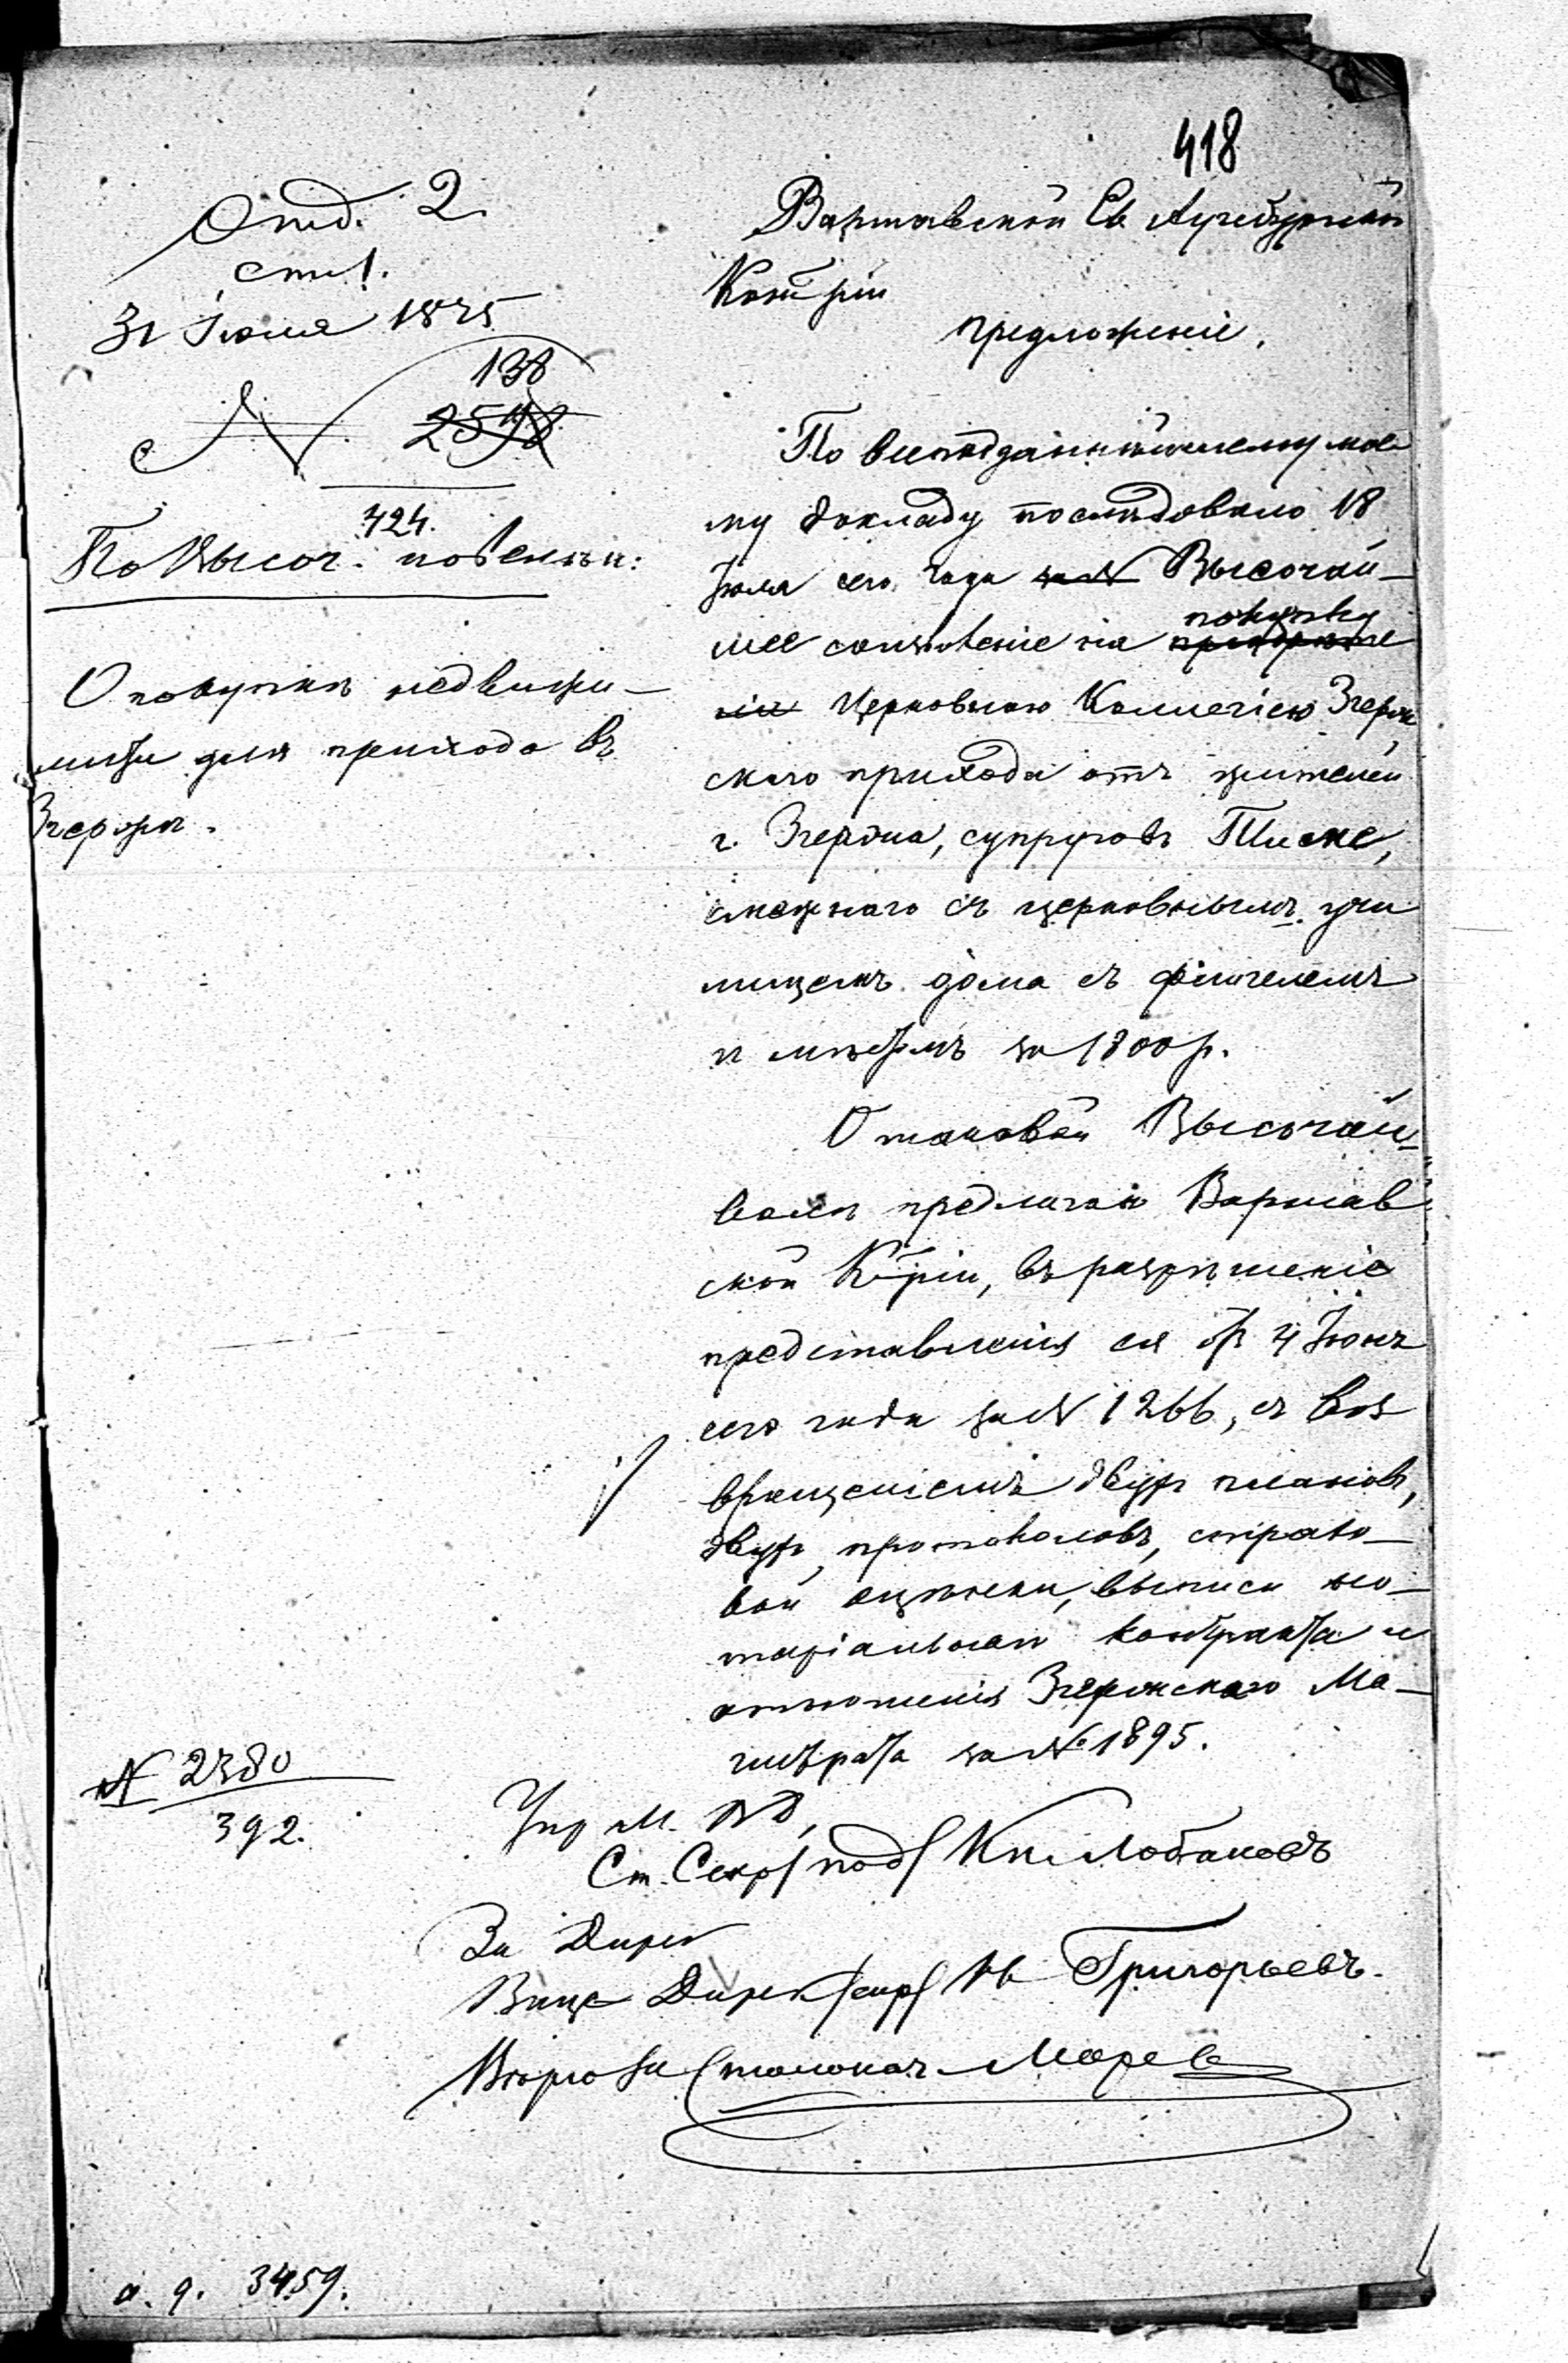 418
Отд. 2
ст. 1.
31 Іюля 1875
138
2598
724.
По Высоч. повелѣн:
О покупкѣ недвижи-
мости для прихода въ
Згержѣ.
Варшавской Ев. Аугсбургской
Консторіи
предложеніе.
По всеподданнѣйшему мое
му докладу послѣдовало 18
Іюля сего года Высочай-
шее соизволеніе на покупку
Церковною Коллегіею Згерж
скаго прихода отъ жителей
г. Згержа, супруговъ Тиске,
смежнаго съ церковнымъ учи
лищемъ дома съ флигелемъ
и мѣстомъ за 1800 р.
О таковой Высочай
волѣ предлагаю Варшав
ской К-ріи, въ разрѣшеніе
представленія ея отъ 4 Іюня
сего года за № 1266, съ воз
вращеніемъ двухъ плановъ,
двухъ протоколовъ, страхо-
вой оцѣнки, выписи но-
таріальнаго контракта и
отношенія Згержскаго Ма-
гистрата за № 1895.
Упр. М. ВД,
Ст. Секр. подп. Кн. Лобановъ
За Дирек
Вице Директ. скр. Ив. Григорьевъ.
Вѣрно: За Столонач. Марев
№ 2380
392.
а. д. 3459.